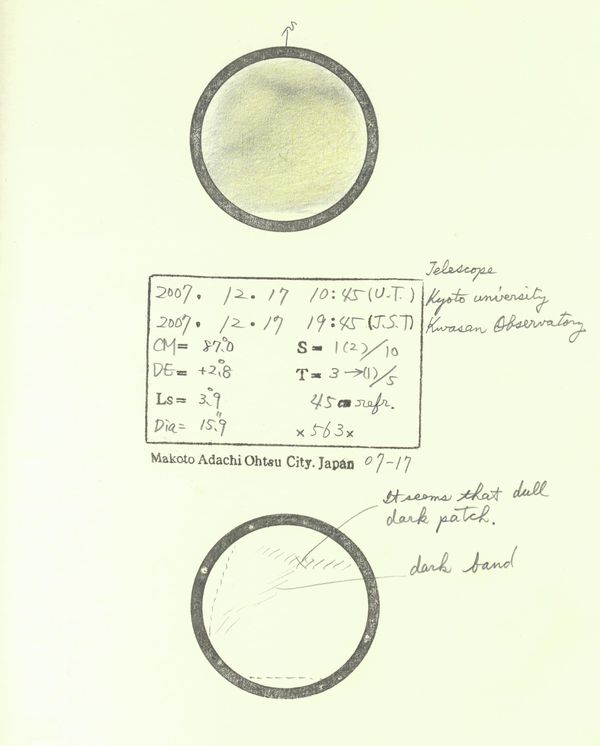 S
2007. 12. 17 10:45 (U.T.)
2007. 12. 17 19:45 (J.S.T)
CM= 87.°0 S= 1(2)/10
DE= +2.°8 T= 3→(1)/5
Ls= 3.°9 45cm refr.
Dia= 15."9 ×563×
Telescope
Kyoto university
Kwasan Observatory
Makoto Adachi Ohtsu City. Japan 07-17
It seems that dull
dark patch.
dark band